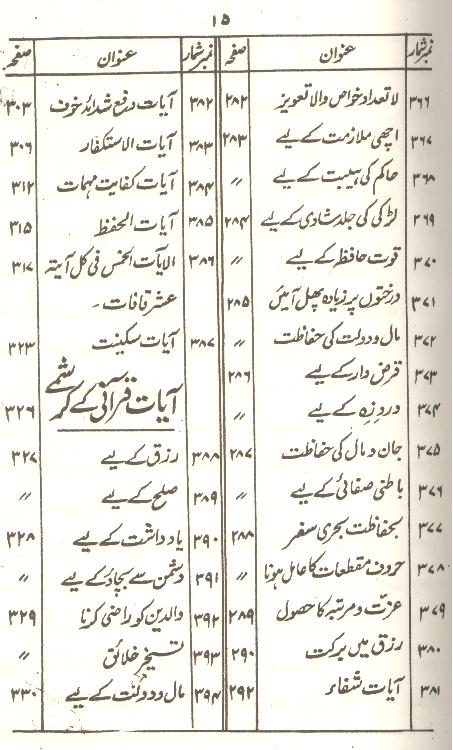 ۱۵
نمبرشمار عنوان صفحہ
۳۶۶ لا تعداد خواص والا تعویز ۲۸۲
۳۶۷ اچھی ملازمت کے لیے ۲۸۳
۳۶۸ حاکم کی ہیبت کے لیے 〃
۳۶۹ لڑکی کی جلد شادی کے لیے ۲۸۴
۳۷۰ قوت حافظہ کے لیے 〃
۳۷۱ درختوں پر زیادہ پھل آئیں ۲۸۵
۳۷۲ مال و دولت کی حفاظت 〃
۳۷۳ قرض دار کے لیے ۲۸۶
۳۷۴ دردِ زہ کے لیے 〃
۳۷۵ جان و مال کی حفاظت ۲۸۷
۳۷۶ باطنی صفائی کے لیے 〃
۳۷۷ بحفاظت بحری سفر ۲۸۸
۳۷۸ حروف مقطعات کا عامل ہونا 〃
۳۷۹ عزت و مرتبہ کا حصول ۲۸۹
۳۸۰ رزق میں برکت ۲۹۰
۳۸۱ آیات شفاء ۲۹۲
نمبرشمار عنوان صفحہ
۳۸۲ آیات دفع شدائد خوف ۳۰۳
۳۸۳ آیات الاستکفار ۳۰۶
۳۸۴ آیات کفایت مہمات ۳۱۲
۳۸۵ آیات الحفظ ۳۱۵
۳۸۶ الایآت الخمس فی کل آیتہ ۳۱۷
عشر قافات۔
۳۸۷ آیات سکینت ۳۲۳
آیات قرآنی کے کرشمے ۳۲۶
۳۸۸ رزق کے لیے ۳۲۷
۳۸۹ صلح کے لیے 〃
۳۹۰ یادداشت کے لیے ۳۲۸
۳۹۱ دشمن سے بچاؤ کے لیے 〃
۳۹۲ والدین کو راضی کرنا ۳۲۹
۳۹۳ تسخیر خلائق 〃
۳۹۴ مال و دولت کے لیے ۳۳۰